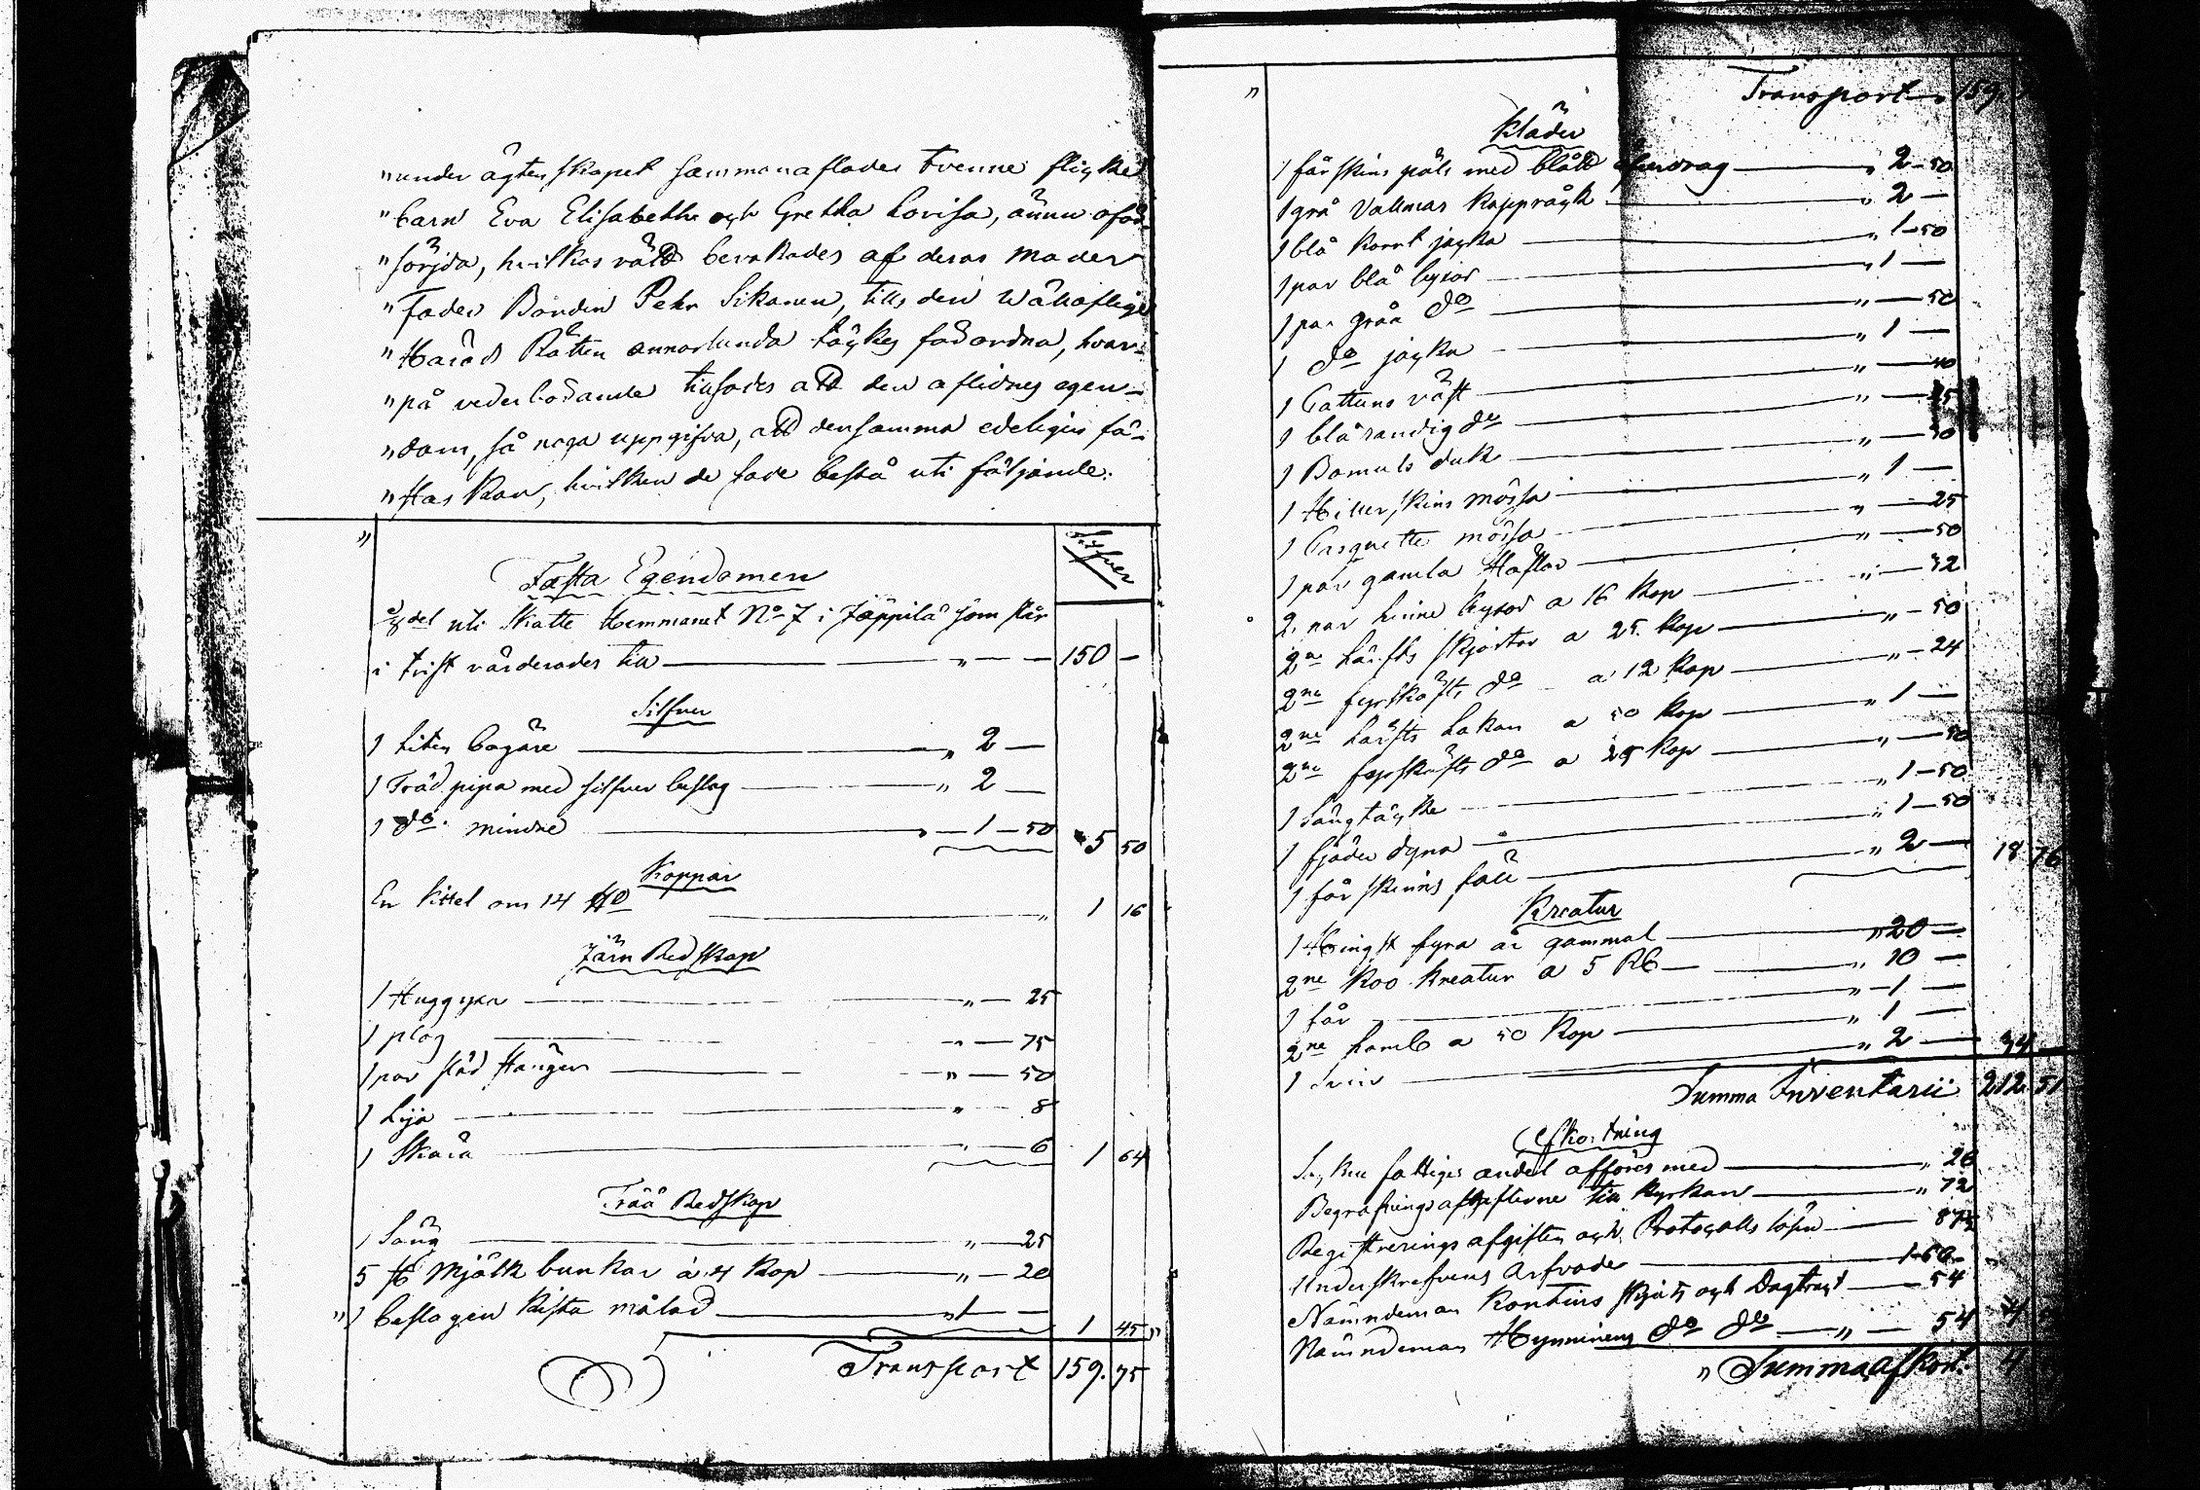 "under ägtenskapet sammanaflades tvenne flicke
"barn Eva Elisabetha och Gretha Lovisa, ännu oför-
"sörjda, hvilkas rätt bevakades af deras moder
"Fader Bonden Pehr Sikanen, tills den Wällofliga
"Härads Rätten annorlunda täckes förordna, hvar-
"på vederbörande tillsades att den aflidnes egen-
"dom, så noga uppgifva, att densamma edeligen fä-
"stas kan, hvilken de sade bestå uti följande.
" Silfver
Fasta Egendomen
del uti Skatte Hemmanet No 7 i Jäppilä som står
i trist värderades till — " — — 150 —
Silfver
1 Liten bägare — " 2 —
1 Träd pipa med silfver beslag — " 2 —
1 do. mindre — " — 1 — 50 5 50
Koppar
En kittel om 14 — " 1 16
Järn Redskap
1 Huggyxa — " — 25
1 plog — " — 75
1 par släd stänger — " — 50
1 Lija — " 8
1 Skära — " — 6 1 64
Träd Redskap
1 Säng — " — 25
5 st Mjölk bunkar à 4 Kop — " — 20
" 1 beslagen kista målad — " 1 — 1 45 "
Transport 159. 75
" Transport. 159.
Kläder
1 fårskins päls med blått öfverdrag — " 2 — 50
1 grå Vallmas kappråck — " 2 —
1 blå kort jacka — " 1 — 50
1 par blå byxor — " 1 —
1 par gråa do — " — 50
1 do jacka — " 1 —
1 Cattuns väst — " — 40
1 blårandig do — " —
1 Bomuls duk — " —
1 Hillerskins mössa — " 1 —
1 Casquette mössa — " — 25
1 par gamla stöflar — " — 50
2 par linne byxor a 16 Kop — " — 32
2ne Lärfts skjortor a 25. Kop — " — 50
2ne fyrskäfts do a 12 Kop — " — 24
2ne Lärfts Lakan a 50 Kop — " 1 —
2ne fyrskäfts do a 25 Kop — " — 50
1 Sängtäcke — " 1 — 50
1 fjäder dyna — " 1 — 50
1 fårskinns fäll — " 2 — 18 76
Kreatur
1 Hingst fyra år gammal — " 20 —
2ne Koo kreatur a 5 Rb — " 10 —
1 får — " — 1 —
2ne Lamb a 50 Kop — " 1 —
1 Svin — " 2 — 34
Summa Inventarii 212 51
Afkortning
fattiges andel afföres med — " 26
Begrafnings afgifterne till Kyrkan — " 72
Registrerings afgiften och Protocolls lösen —
Underskrefvens Arfvode — 1 — 60
Nämndeman Kontins skjuts och Dagtract — 54
Nämndeman Hynninens do do — " — 54 4
" Summa Afkort. 4